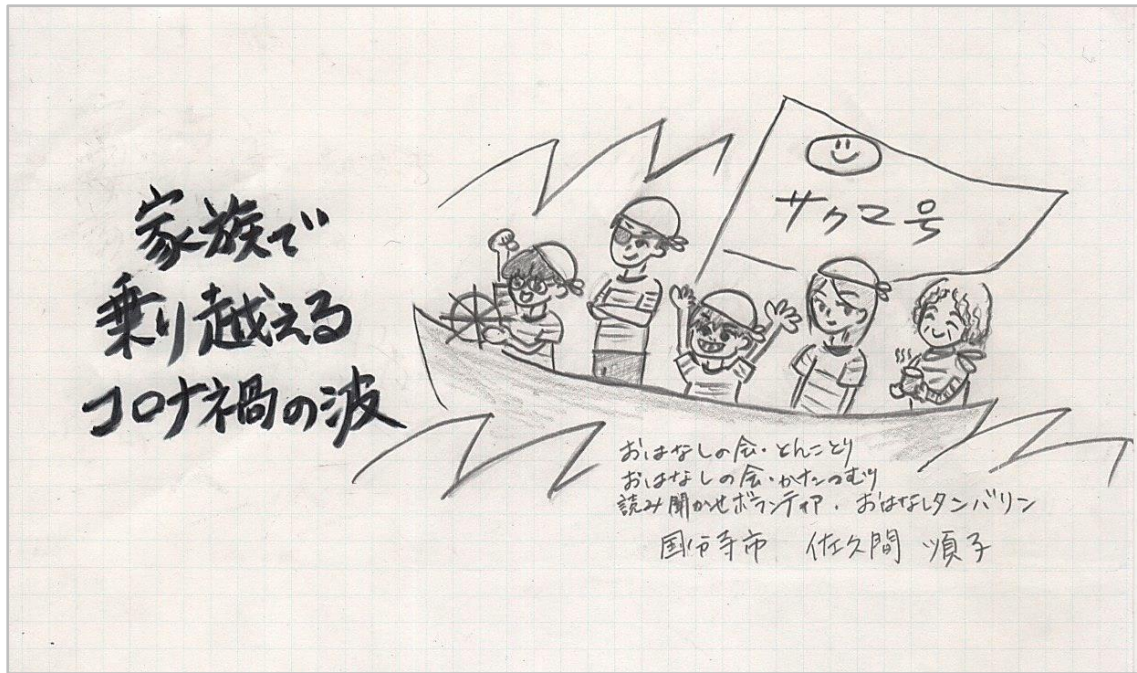 家族で
乗り越える
コロナ禍の波
サクマ号
おはなしの会・とんことり
おはなしの会・かたつむり
読み聞かせボランティア・おはなしタンバリン
国分寺市 佐久間 順子